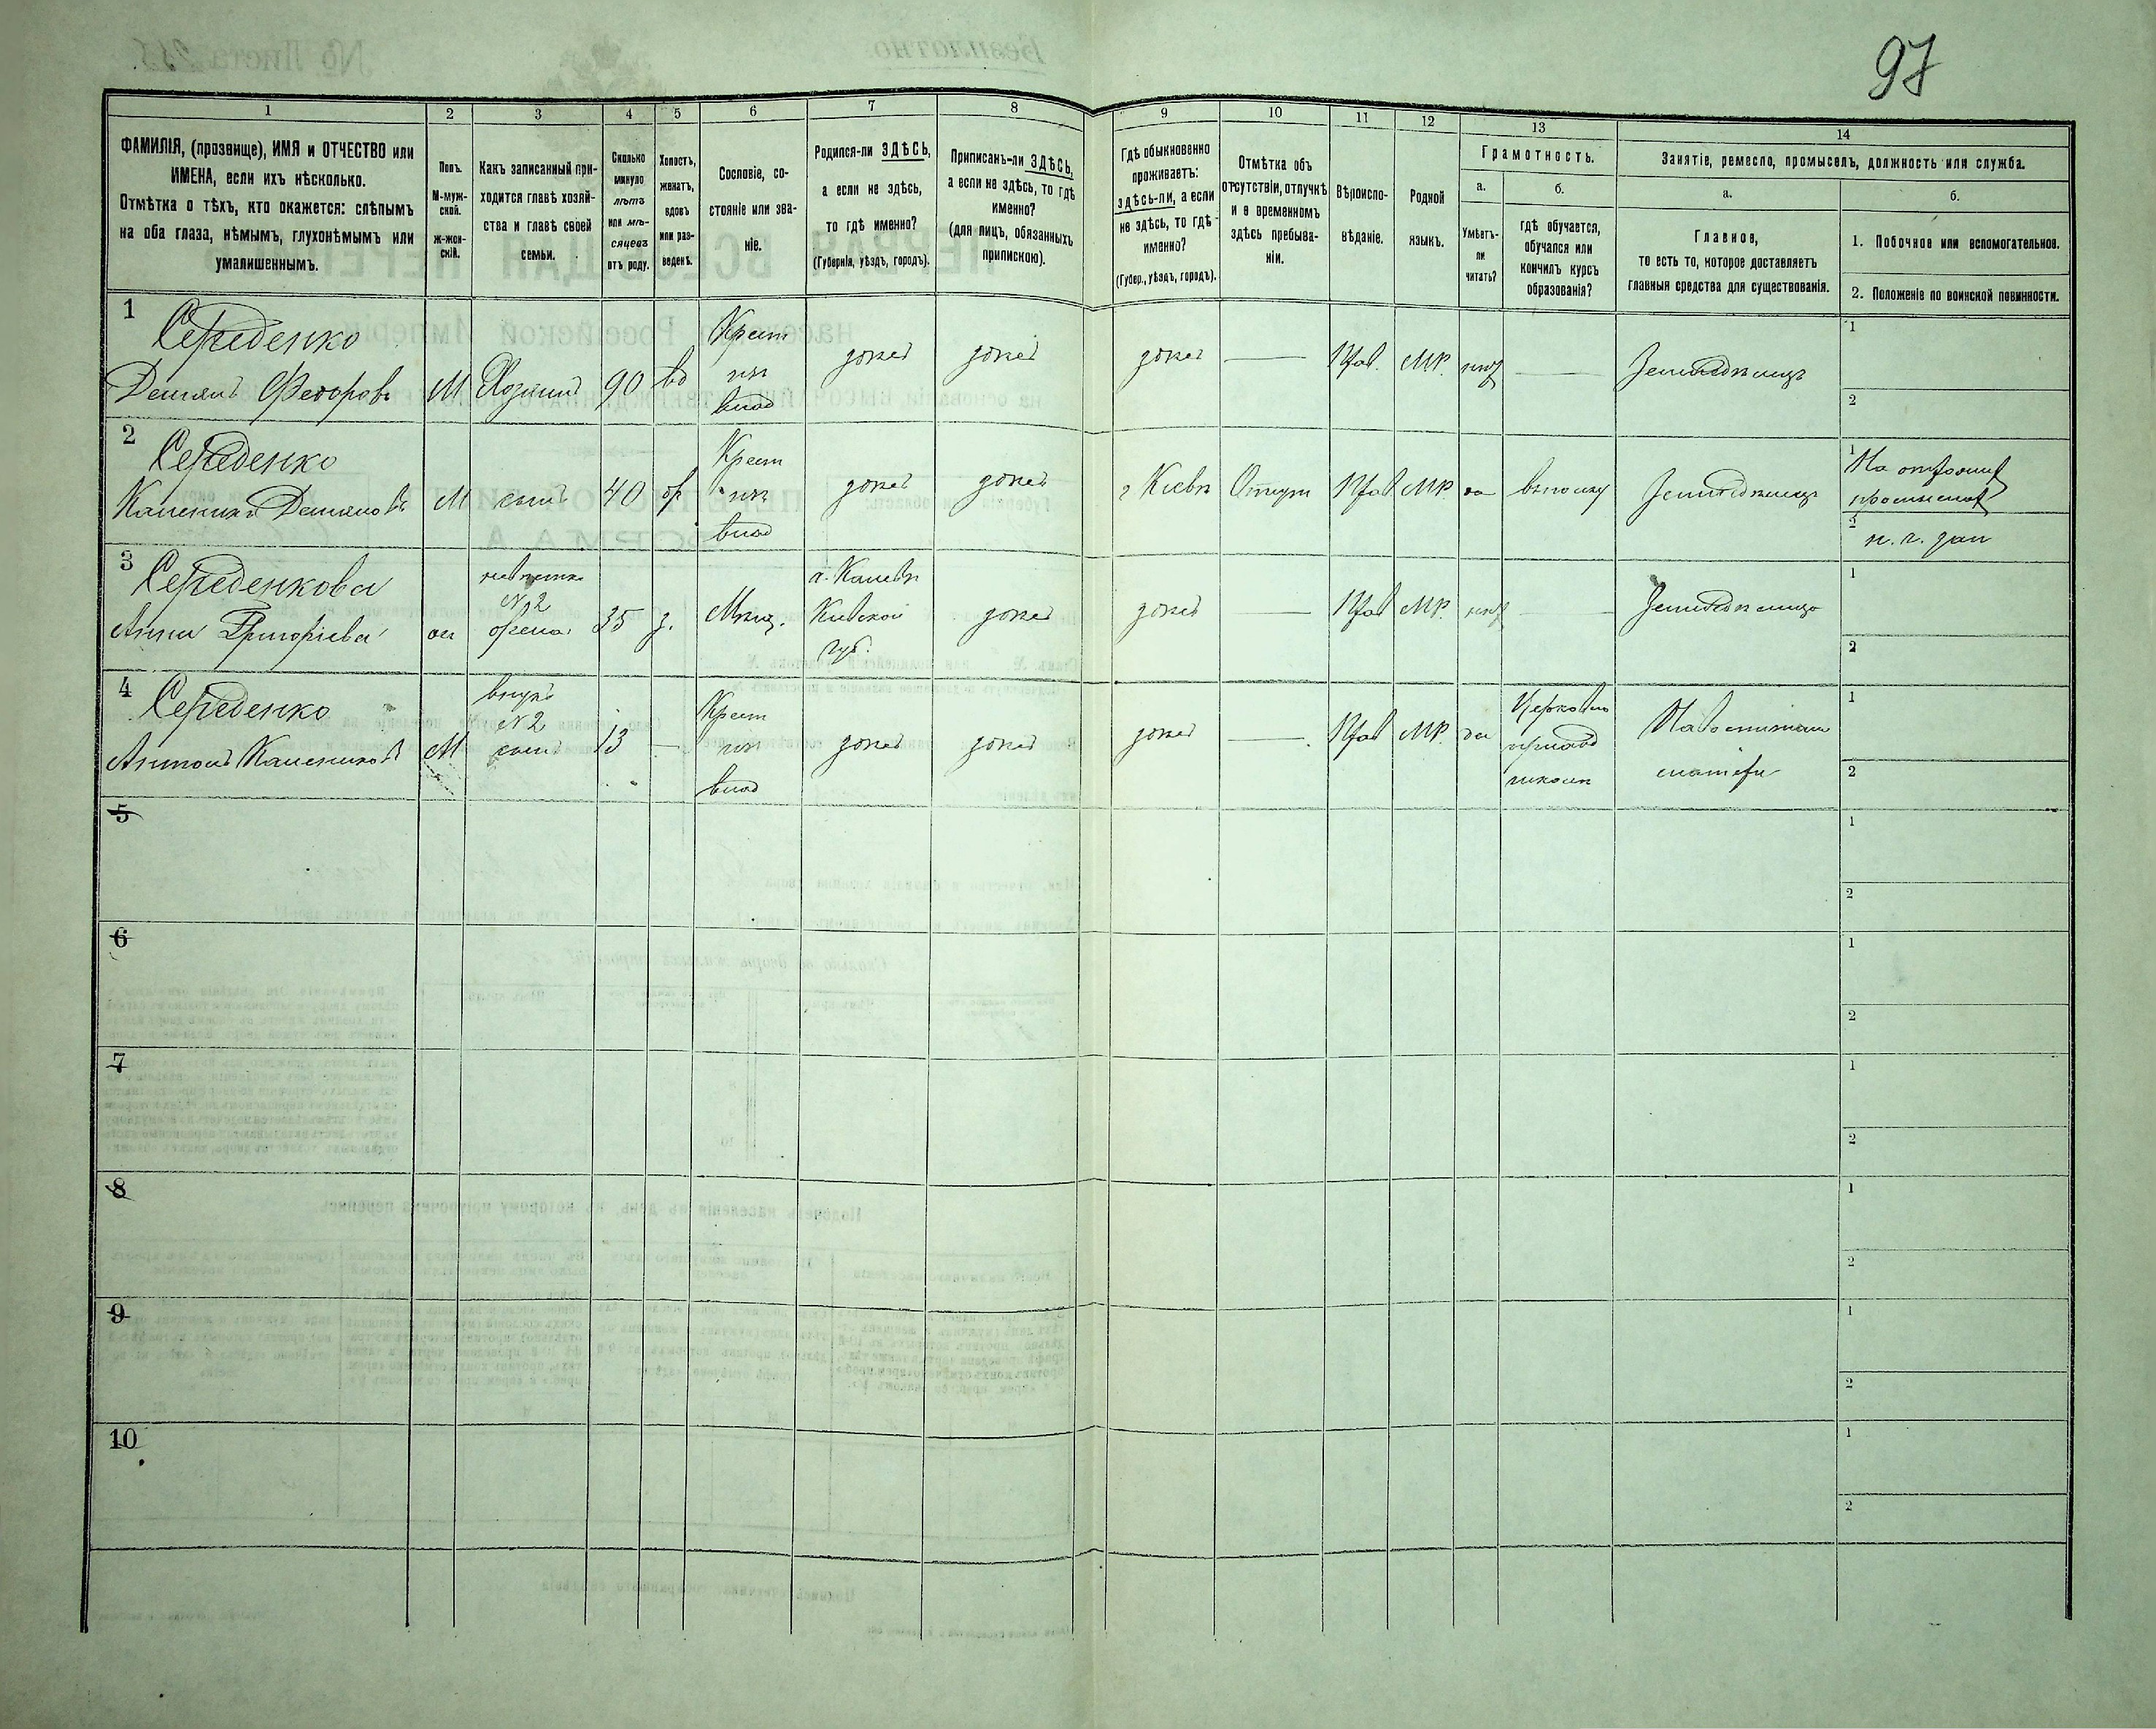 97
1 2 3 4 5 6 7 8 9 10 11 12 13 14
ФАМИЛІЯ, (прозвище), ИМЯ и ОТЧЕСТВО или
ИМЕНА, если ихъ нѣсколько.
Отмѣтка о тѣхъ, кто окажется: слѣпымъ
на оба глаза, нѣмымъ, глухонѣмымъ или
умалишеннымъ.
Полъ.
М-муж-
ской.
Ж-жен-
скій.
Какъ записанный при-
ходится главѣ хозяй-
ства и главѣ своей
семьи.
Сколько
минуло
лѣтъ
или мѣ-
сяцевъ
отъ роду.
Холостъ,
женатъ,
вдовъ
или раз-
веденъ.
Сословіе, со-
стояніе или зва-
ніе.
Родился-ли ЗДѢСЬ,
а если не здѣсь,
то гдѣ именно?
(Губернія, уѣздъ, городъ).
Приписанъ-ли ЗДѢСЬ,
а если не здѣсь, то гдѣ
именно?
(для лицъ, обязанныхъ
припискою).
Гдѣ обыкновенно
проживаетъ:
здѣсь-ли, а если
не здѣсь, то гдѣ
именно?
(Губер., уѣздъ, городъ).
Отмѣтка объ
отсутствіи, отлучкѣ
и о временномъ
здѣсь пребыва-
ніи.
Вѣроиспо-
вѣданіе.
Родной
языкъ.
Грамотность.
а.
Умѣетъ-
ли
читать?
б.
гдѣ обучается,
обучался или
кончилъ курсъ
образованія?
Занятіе, ремесло, промыселъ, должность или служба.
а.
Главное,
то есть то, которое доставляетъ
главныя средства для существованія.
б.
1. Побочное или вспомогательное.
2. Положеніе по воинской повинности.
1
Середенко
Демянъ Федоровъ
М
Хозяинъ
90
вд
Крест
изъ
влад
здѣсь
здѣсь
здѣсь
—
Прав.
МР.
нѣтъ
—
Земледѣлецъ
1
2
2
Середенко
М
сынъ
40
Крест
изъ
влад
здѣсь
здѣсь
г Кіевъ
Прав
МР
да
Земледѣлецъ
1
2
3
Середенкова
Анна Григорьева
невѣстка
№2
жена
35
з.
Мѣщ.
г. Каневъ
Кіевской
губ.
здѣсь
здѣсь
—
Прав
МР.
нѣтъ
—
1
2
4
Середенко
Антонъ
М
внукъ
№2
сынъ
13
—
Крест
изъ
влад
здѣсь
здѣсь
здѣсь
—
Прав
МР.
да
Церковно
приход
школѣ
1
2
5
1
2
6
1
2
7
1
2
8
1
2
9
1
2
10
1
2